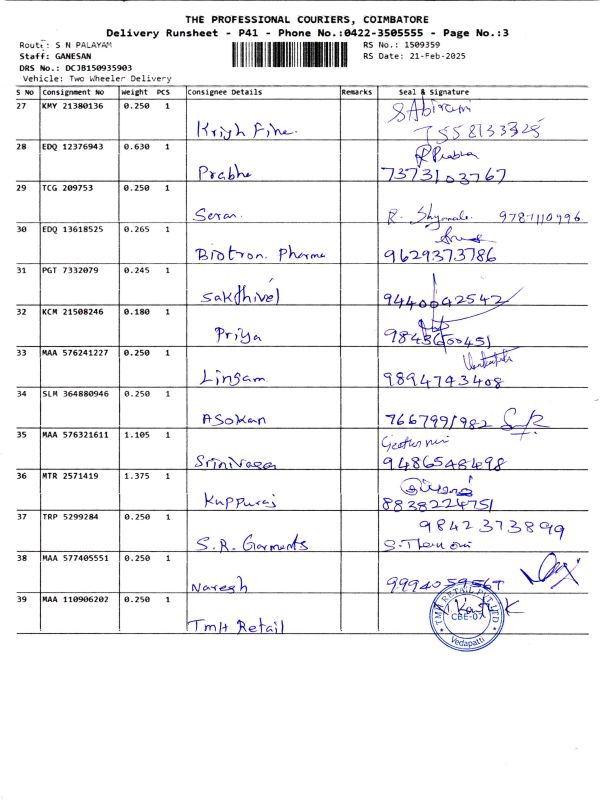 THE PROFESSIONAL COURIERS, COIMBATORE
Delivery Runsheet - P41 - Phone No.:0422-3505555 - Page No.:3
Route: S N PALAYAM
RS No.: 1509359
Staff: GANESAN
RS Date: 21-Feb-2025
DRS No.: DCJB150935903
Vehicle: Two Wheeler Delivery
S No Consignment No Weight PCS Consignee Details Remarks Seal & Signature
27 KMY 21380136 0.250 1
S Abirami
Krish Fine.
28 EDQ 12376943 0.630 1
R Prabha
Prabhe 7373103767
29 TCG 209753 0.250 1
R. Shyamala 9787110996
30 EDQ 13618525 0.265 1
Biotron. Pharma 9629373786
31 PGT 7332079 0.245 1
Sakthivel 9440092542
32 KCM 21508246 0.180 1
Priya
33 MAA 576241227 0.250 1
Lingam. 9894793408
34 SLM 364880946 0.250 1
ASokan 7667991982
35 MAA 576321611 1.105 1
Srinivasan 9486548498
36 MTR 2571419 1.375 1
Kuppuraj 8838224751
37 TRP 5299284 0.250 1
9842373899
S.R. Garments
38 MAA 577405551 0.250 1
Naresh
39 MAA 110906202 0.250 1
TMH RETAIL PVT LTD
CBE-07
Vedapatti
TMH Retail